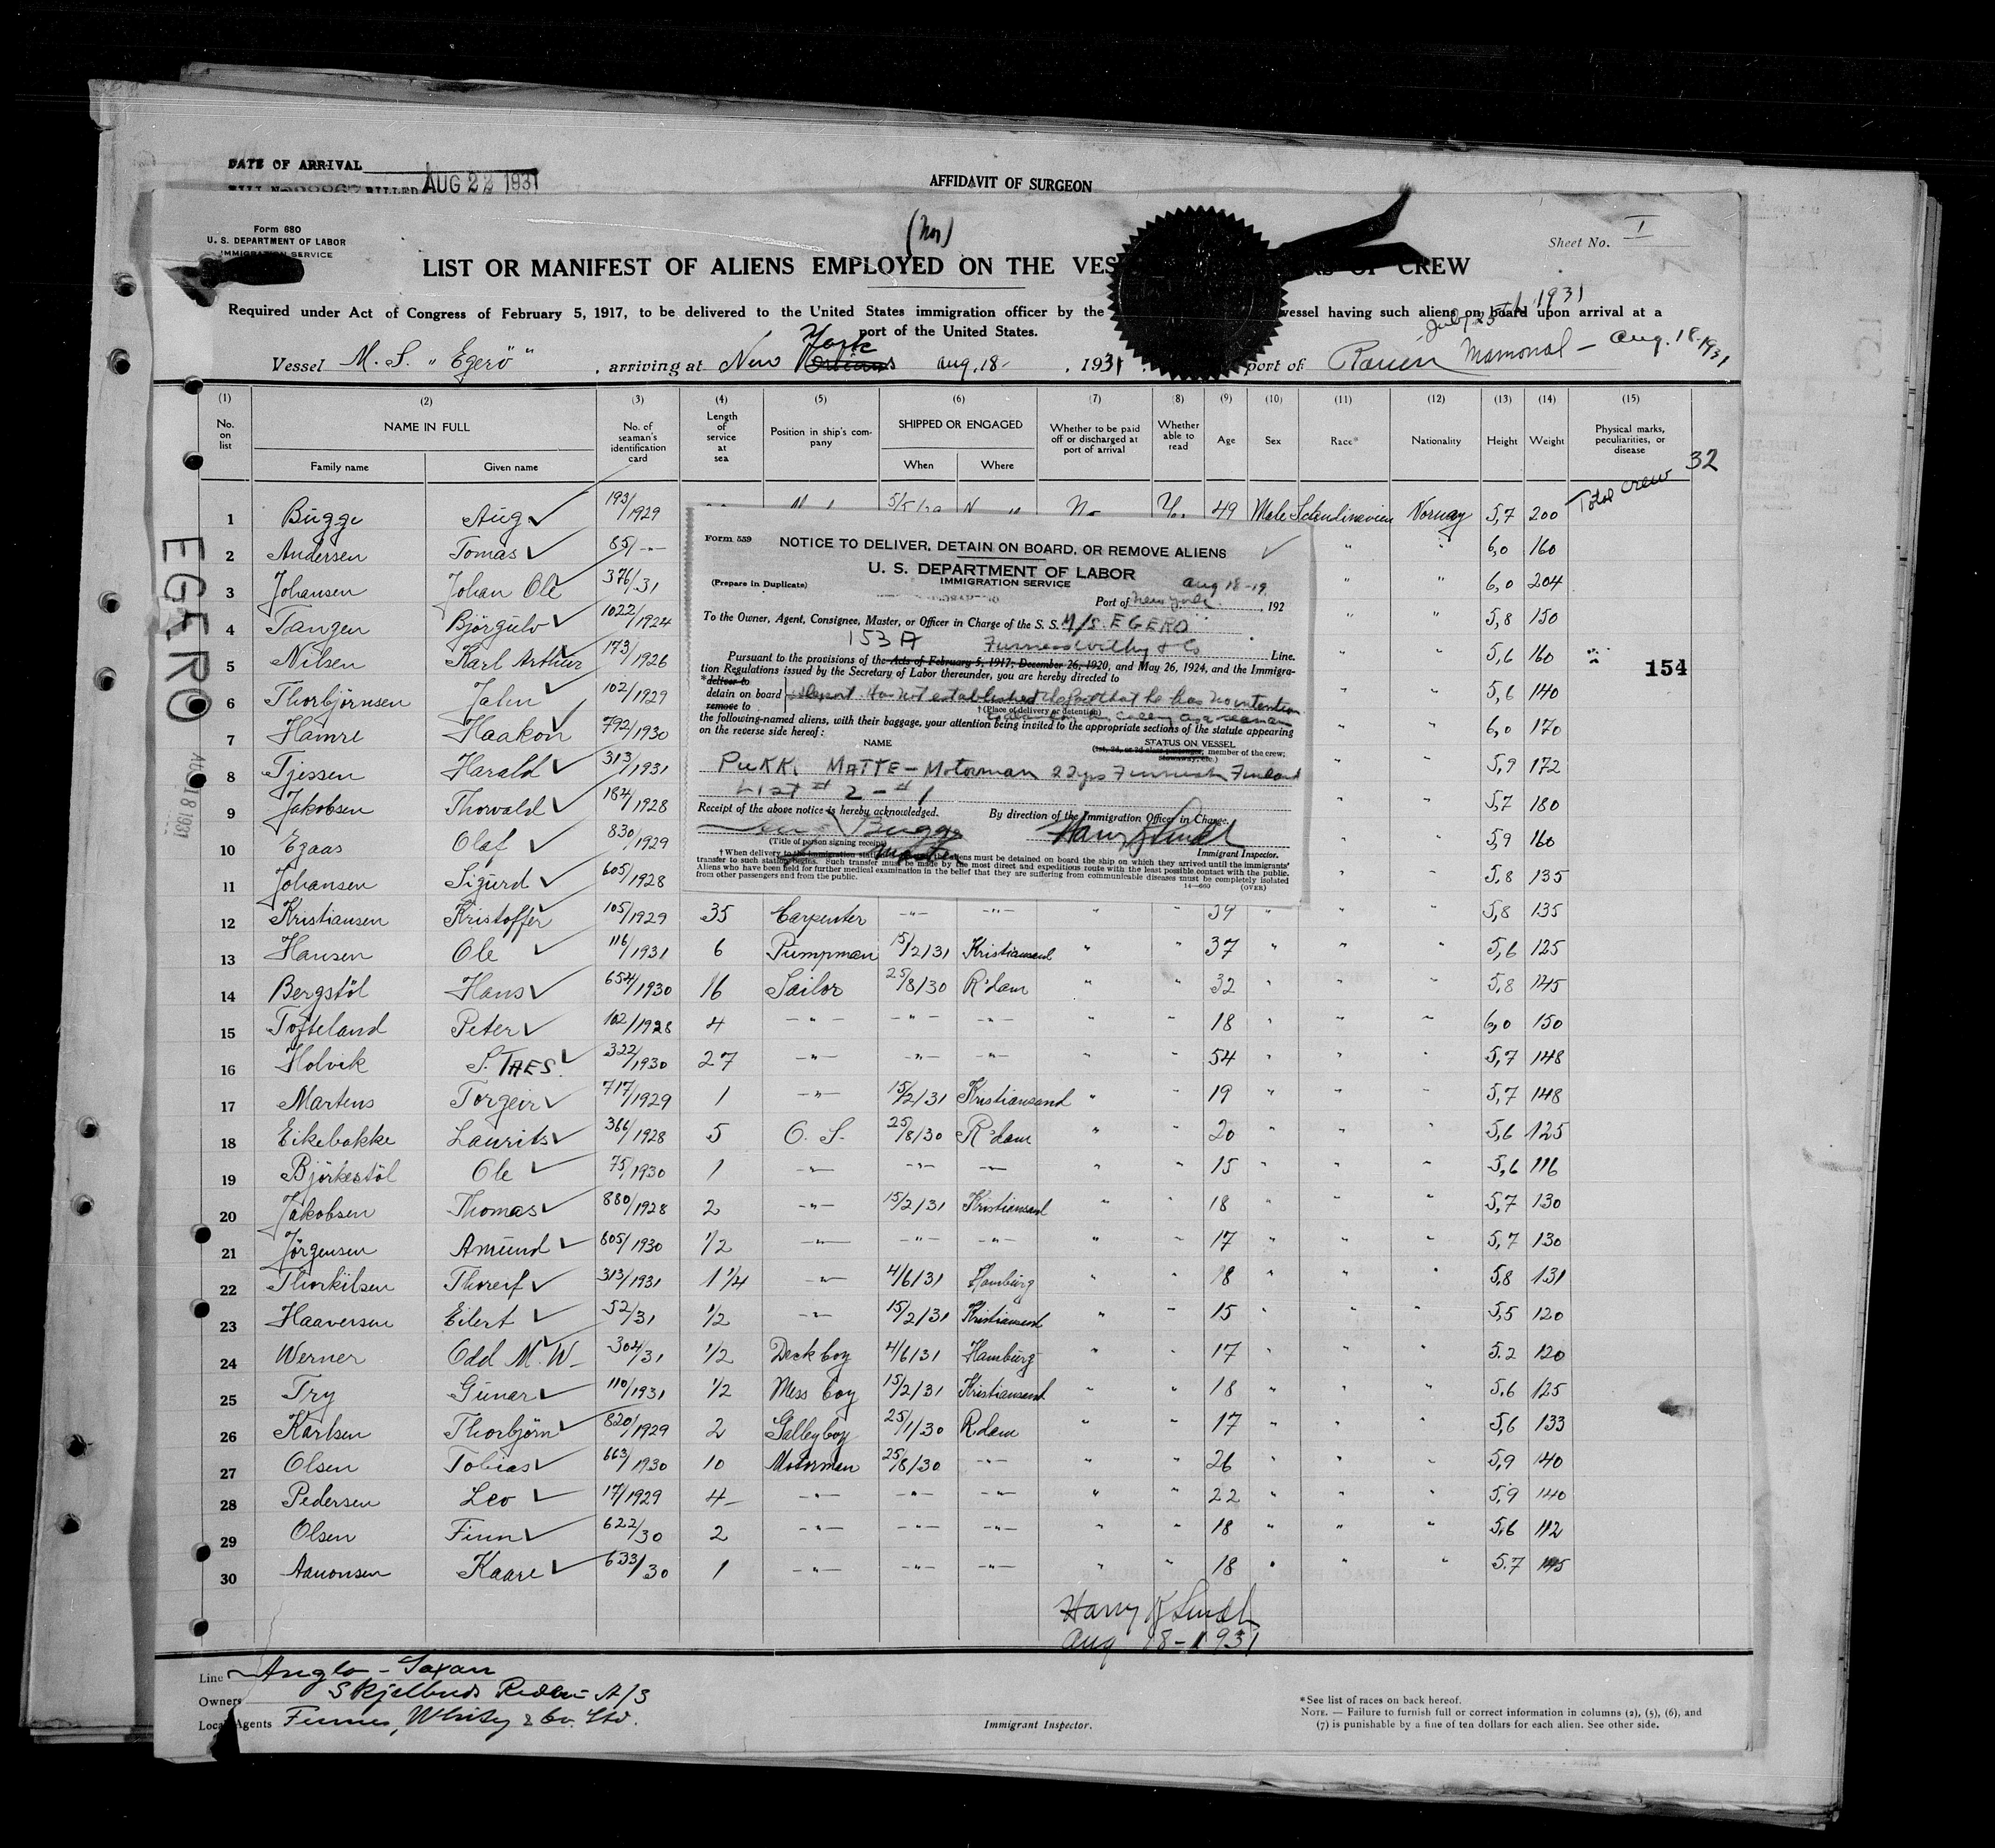 DATE OF ARRIVAL
AUG 22 1931
AFFIDAVIT OF SURGEON
Form 680
U. S. DEPARTMENT OF LABOR
IMMIGRATION SERVICE
(Nor)
Sheet No. I
LIST OR MANIFEST OF ALIENS EMPLOYED ON THE VES CREW
Required under Act of Congress of February 5, 1917, to be delivered to the United States immigration officer by the vessel having such aliens on board upon arrival at a
port of the United States.
July 25th 1931
Vessel M. S. "Egerö", arriving at New York Orleans aug. 18 -, 1931. port of Mamonal - Aug. 18-1931
(1) (2) (3) (4) (5) (6) (7) (8) (9) (10) (11) (12) (13) (14) (15)
No. on list
NAME IN FULL
Family name Given name
No. of seaman's identification card
Length of service at sea
Position in ship's company
SHIPPED OR ENGAGED
When Where
Whether to be paid off or discharged at port of arrival
Whether able to read
Age Sex Race* Nationality Height Weight
Physical marks, peculiarities, or disease
Total crew 32
1 Bugge Aug 193/1929 49 Male Scandinavien Norway 5,7 200
2 Andersen Tomas 85/-"- " " 6,0 160
3 Johansen Johan Ole 376/31 " " 6,0 204
4 Tangen Björgulv 1022/1924 " " 5,8 150
5 Nilsen Karl Arthur 173/1926 " " 5,6 160
154
6 Thorbjörnsen Jahn 102/1929 " " 5,6 140
7 Hamre Haakon 792/1930 " " 6,0 170
8 Tjessen Harald 313/1931 " " 5,9 172
9 Jakobsen Thorvald 184/1928 " " 5,7 180
10 Egaas Olaf 830/1929 " " 5,9 160
11 Johansen Sigurd 605/1928 " " 5,8 135
12 Kristiansen Kristoffer 105/1929 35 Carpenter -"- -"- " " 39 " " " 5,8 135
13 Hansen Ole 116/1931 6 Pumpman 15/2/31 Kristiansand " " 37 " " " 5,6 125
14 Bergstöl Hans 654/1930 16 Sailor 25/8/30 R'dam " " 32 " " " 5,8 145
15 Tofteland Peter 102/1928 4 -"- -"- -"- " " 18 " " " 6,0 150
16 Holvik S. TAES. 322/1930 27 -"- -"- -"- " " 54 " " " 5,7 148
17 Martens Torgeir 717/1929 1 -"- 15/2/31 Kristiansand " " 19 " " " 5,7 148
18 Eikebakke Laurits 366/1928 5 O. S. 25/8/30 R'dam " " 20 " " " 5,6 125
19 Björkestöl Ole 75/1930 1 -"- -"- -"- " " 15 " " " 5,6 116
20 Jakobsen Thomas 880/1928 2 -"- 15/2/31 Kristiansand " " 18 " " " 5,7 130
21 Jörgensen Amund 605/1930 1/2 -"- -"- -"- " " 17 " " " 5,7 130
22 Thorkilsen Thoreif 313/1931 1 1/4 -"- 4/6/31 Hamburg " " 18 " " " 5,8 131
23 Haaversen Eilert 52/31 1/2 -"- 15/2/31 Kristiansand " " 15 " " " 5,5 120
24 Werner Odd M. W. 304/31 1/2 Deck boy 4/6/31 Hamburg " " 17 " " " 5.2 120
25 Try Gunar 110/1931 1/2 Mess boy 15/2/31 Kristiansand " " 18 " " " 5.6 125
26 Karlsen Thorbjörn 820/1929 2 Galleyboy 25/1/30 R.dam " " 17 " " " 5,6 133
27 Olsen Tobias 663/1930 10 Motorman 25/8/30 -"- " " 26 " " " 5,9 140
28 Pedersen Leo 17/1929 4 -"- -"- -"- " " 22 " " " 5,9 140
29 Olsen Finn 622/30 2 -"- -"- -"- " " 18 " " " 5,6 112
30 Aanonsen Kaare 633/30 1 -"- -"- -"- " " 18 " " " 5.7 145
Form 559
NOTICE TO DELIVER, DETAIN ON BOARD, OR REMOVE ALIENS
U. S. DEPARTMENT OF LABOR
IMMIGRATION SERVICE
(Prepare in Duplicate)
aug 18-19
Port of New York, 192
To the Owner, Agent, Consignee, Master, or Officer in Charge of the S. S. M/S. EGERO
153 A Furness Withy & Co Line.
Pursuant to the provisions of the Acts of February 5, 1917; December 26, 1920, and May 26, 1924, and the Immigra-
tion Regulations issued by the Secretary of Labor thereunder, you are hereby directed to
*deliver to
detain on board Has not established the fact that he has no intention
remove to †(Place of delivery or detention) to abandon his calling as a seaman
the following-named aliens, with their baggage, your attention being invited to the appropriate sections of the statute appearing
on the reverse side hereof:
NAME STATUS ON VESSEL
(1st, 2d, or 3d class passenger, member of the crew, stowaway, etc.)
PUKKI MATTE - Motorman 22yrs Finnish Finland
List # 2 - # 1
Receipt of the above notice is hereby acknowledged. By direction of the Immigration Officer in Charge.
Bugge Harry Lindl
(Title of person signing receipt) Master
Immigrant Inspector.
†When delivery to the immigration station aliens must be detained on board the ship on which they arrived until the immigrants'
transfer to such station begins. Such transfer must be made by the most direct and expeditious route with the least possible contact with the public.
Aliens who have been held for further medical examination in the belief that they are suffering from communicable diseases must be completely isolated
from other passengers and from the public.
14-660 (OVER)
EGERO
AUG 18 1931
Aug 18-1931
Line Anglo-Saxon
Owners Skjelbreds Rederi A/S
Local Agents Furness, Withy & Co. Ltd.
Immigrant Inspector.
*See list of races on back hereof.
NOTE. — Failure to furnish full or correct information in columns (2), (5), (6), and
(7) is punishable by a fine of ten dollars for each alien. See other side.